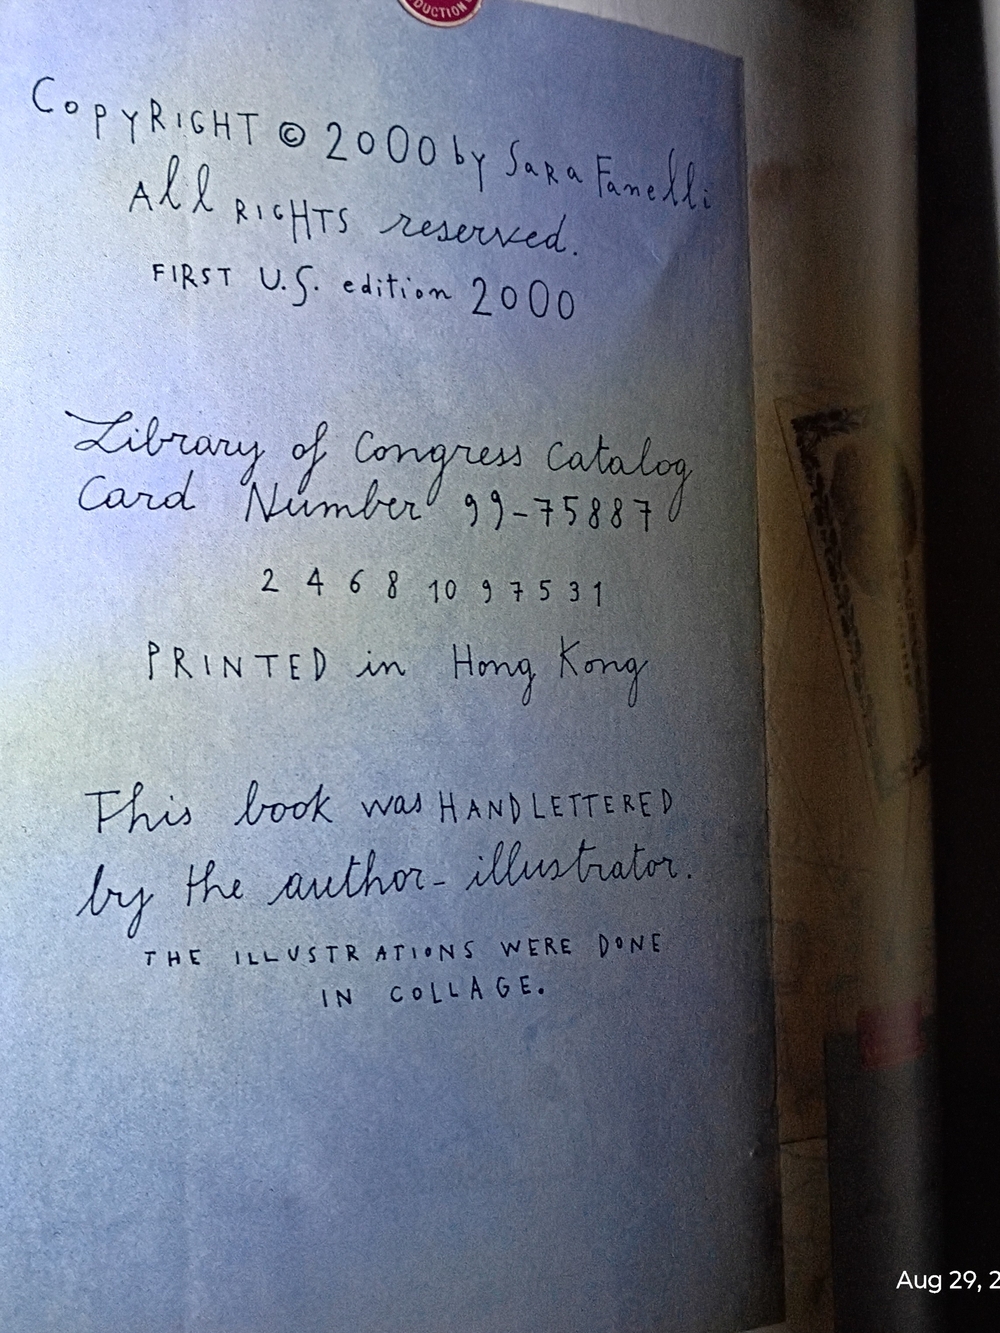 DUCTION
COPYRIGHT © 2000 by SARa Fanelli
All RIGHTS reserved.
FIRST U.S. edition 2000
Library of Congress Catalog
Card Number 99-75887
2 4 6 8 10 9 7 5 3 1
PRINTED in Hong Kong
This book was HANDLETTERED
by the author-illustrator.
THE ILLUSTRATIONS WERE DONE
IN COLLAGE.
Aug 29, 2